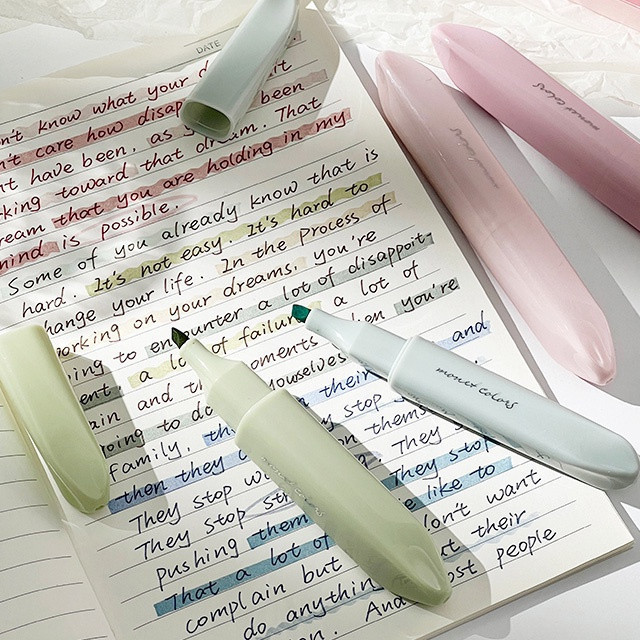 DATE
n't know what your d
n't care how disap been
nt have been, as yo That
king toward that dream.
ream that you are holding in my
mind is possible.
Some of you already know that is
hard. It's not easy. It's hard to
hange your life. In the Process of
orking on your dreams, you're
oing to encounter a lot of disappoit-
ent. a lot of failure a lot of
ain and the moments when you're
going to do yourselves and
Family. the their
then they on thems
They stop wo They stop
They stop str They stop
pushing them like to
That a lot of don't want
complain but t their
do anything ost people
on. And
monet colors
monet colors
monet colors
monet colors